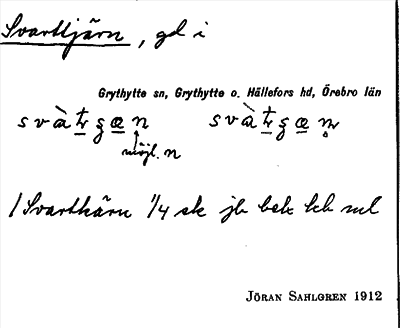 Svarttjärn, gd i
Grythytte sn, Grythytte o. Hällefors hd, Örebro län
svàtʀ̣gæn svàtʀ̣gæn
möjl. n
/ Svartkärn 1/4 sk jb bek kb ml
JÖRAN SAHLGREN 1912